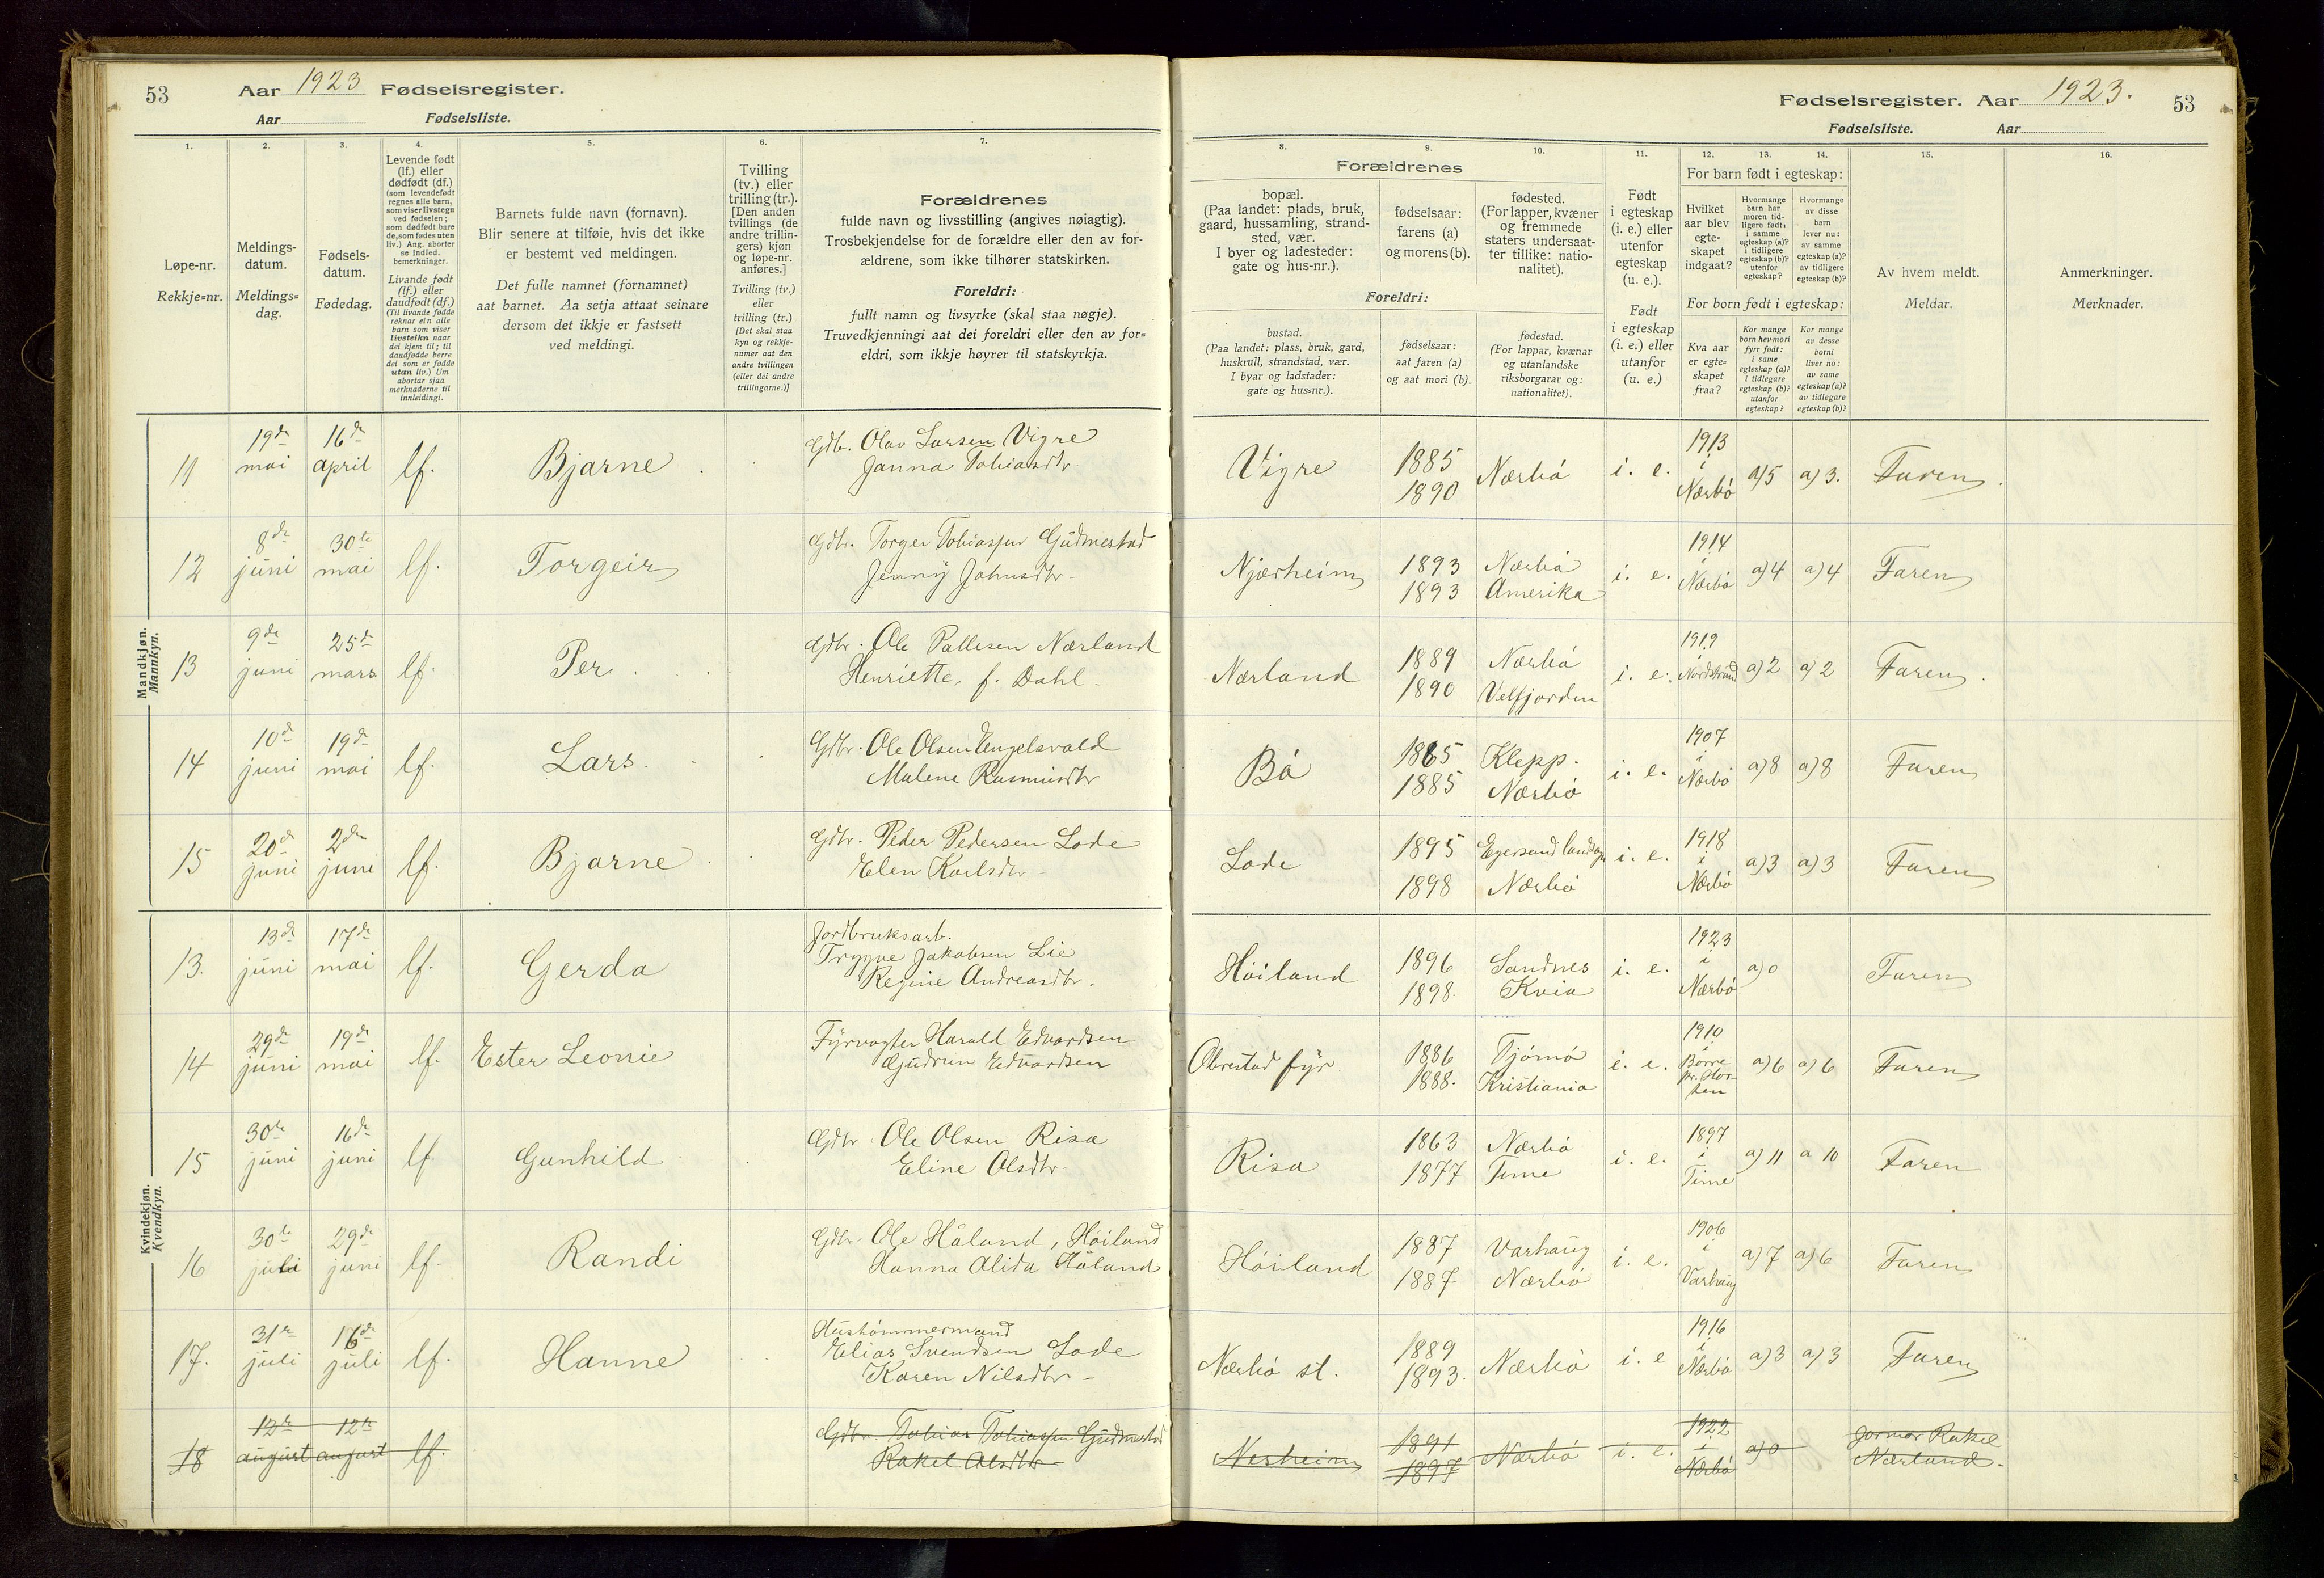 53 Aar 1923 Fødselsregister.
Aar Fødselsliste.
1. 2. 3. 4. 5. 6. 7.
Løpe-nr.
Rekkje=nr.
Meldings-
datum.
Meldings=
dag.
Fødsels-
datum.
Fødedag.
Levende født
(lf.) eller
dødfødt (df.)
(som levendefødt
regnes alle barn,
som viser livstegn
ved fødselen;
som dødfødt bare
de, som fødes uten
liv.) Ang. aborter
se indled.
bemerkninger.
Livande født
(lf.) eller
daudfødt (df.)
(Til livande fødde
reknar ein alle
barn som viser
livsteikn naar
dei kjem til; til
daudfødde berre
dei som er fødde
utan liv.) Um
abortar sjaa
merknaderne til
innleidingi.
Barnets fulde navn (fornavn).
Blir senere at tilføie, hvis det ikke
er bestemt ved meldingen.
Det fulle namnet (fornamnet)
aat barnet. Aa setja attaat seinare
dersom det ikkje er fastsett
ved meldingi.
Tvilling
(tv.) eller
trilling (tr.).
[Den anden
tvillings (de
andre trillin-
gers) kjøn
og løpe-nr.
anføres.]
Tvilling (tv.)
eller
trilling (tr.)
[Det skal staa
kyn og rekkje-
numer aat den
andre tvillingen
(eller dei andre
trillingarne.)]
Forældrenes
fulde navn og livsstilling (angives nøiagtig).
Trosbekjendelse for de forældre eller den av for-
ældrene, som ikke tilhører statskirken.
Foreldri:
fullt namn og livsyrke (skal staa nøgje).
Truvedkjenningi aat dei foreldri eller den av for=
eldri, som ikkje høyrer til statskyrkja.
Mandkjøn.
Mannkyn.
11 19de mai 16de april lf. Bjarne Gdbr. Olav Larsen Vigre
Janna Tobiasdtr
12 8de juni 30te mai lf. Torgeir Gdbr. Torger Tobiassen Gudmestad
Jenny Johnsdtr
13 9de juni 25de mars lf. Per Gdbr. Ole Pallesen Nærland
Henriette, f. Dahl
14 10de juni 19de mai lf. Lars Gdbr. Ole Olsen Engelsvold
Malene Rasmusdtr
15 20de juni 2den juni lf. Bjarne Gdbr. Peder Pedersen Lode
Elen Karlsdtr
Kvindekjøn.
Kvendkyn.
13. 13de juni 17de mai lf. Gerda Jordbruksarb.
Trygve Jakobsen Lie
Regine Andreasdtr.
14 29de juni 19de mai lf. Ester Leonie Fyrvogter Harald Edvardsen
Gudrun Edvardsen
15 30te juni 16de juni lf Gunhild Gdbr. Ole Olsen Risa
Eline Olsdtr
16 30te juli 29de juni lf. Randi Gdbr. Ole Håland, Höiland
Hanna Alida Håland
17. 31te juli 16de juli lf. Hanne Hustömmermand
Elias Svendsen Lode
Karen Nilsdtr
18 12te august 12te august lf. Gdbr. Tobias Tobiassen Gudmestad
Rakel Olsdtr
Fødselsregister. Aar 1923. 53
Fødselsliste. Aar
8. 9. 10. 11. 12. 13. 14. 15. 16.
Forældrenes
bopæl.
(Paa landet: plads, bruk,
gaard, hussamling, strand-
sted, vær.
I byer og ladesteder:
gate og hus-nr.).
fødselsaar:
farens (a)
og morens (b).
fødested.
(For lapper, kvæner
og fremmede
staters undersaat-
ter tillike: natio-
nalitet).
Foreldri:
bustad.
(Paa landet: plass, bruk, gard,
huskrull, strandstad, vær.
I byar og ladstader:
gate og hus=nr.).
fødselsaar:
aat faren (a)
og aat mori (b).
fødestad.
(For lappar, kvænar
og utanlandske
riksborgarar og:
nationalitet).
Født
i egteskap
(i. e.) eller
utenfor
egteskap
(u. e.).
Født
i egteskap
(i. e.) eller
utanfor
(u. e.)
For barn født i egteskap:
Hvilket
aar blev
egte-
skapet
indgaat?
Hvormange
barn har
moren tid-
ligere født:
i samme
egteskap (a)?
i tidligere
egteskap (b)?
utenfor
egteskap?
Hvormange
av disse
barn
lever nu:
av samme
egteskap (a)?
av tidligere
egteskap (b)?
For born født i egteskap:
Kva aar
er egte=
skapet
fraa?
Kor mange
born hev mori
fyrr født:
i same
egteskap (a)?
i tidlegare
egteskap (b)?
utanfor
egteskap?
Kor mange
av desse
borni
liver no:
av same
egteskap (a)?
av tidlegare
egteskap (b)?
Av hvem meldt.
Meldar.
Anmerkninger.
Merknader.
Vigre 1885 1890 Nærbö i. e. 1913 i Nærbö a)5 a)3. Faren
Njærheim 1893 1893 Nærbö Amerika i. e. 1914 i Nærbö a)4 a)4 Faren
Nærland 1889 1890 Nærbö Velfjorden i. e. 1919 i Nordstrand a)2 a)2 Faren
Bö 1865 1885 Klepp. Nærbö i. e. 1907 i Nærbö a)8 a)8 Faren
Lode 1895 1898 Egersund landsogn Nærbö i. e. 1918 i Nærbö a)3 a)3 Faren
Höiland 1896 1898. Sandnes Kvia i. e. 1923 i Nærbö a)0 Faren
Obrestad fyr. 1886 1888. Tjömö Kristiania i. e. 1910 i Borre pr. Hor-
ten a)6 a)6 Faren
Risa 1863 1877 Nærbö Time i. e. 1897 i Time a)11 a 10 Faren
Höiland 1887 1887 Varhaug Nærbö i. e. 1906 i Varhaug a)7 a)6 Faren
Nærbö st. 1889 1893. Nærbö i. e 1916 i Nærbö a)3 a)3 Faren
Nerheim 1891 1897 Nærbö i. e. 1922 i Nærbö a)0 Jormor Rakel
Nærland.